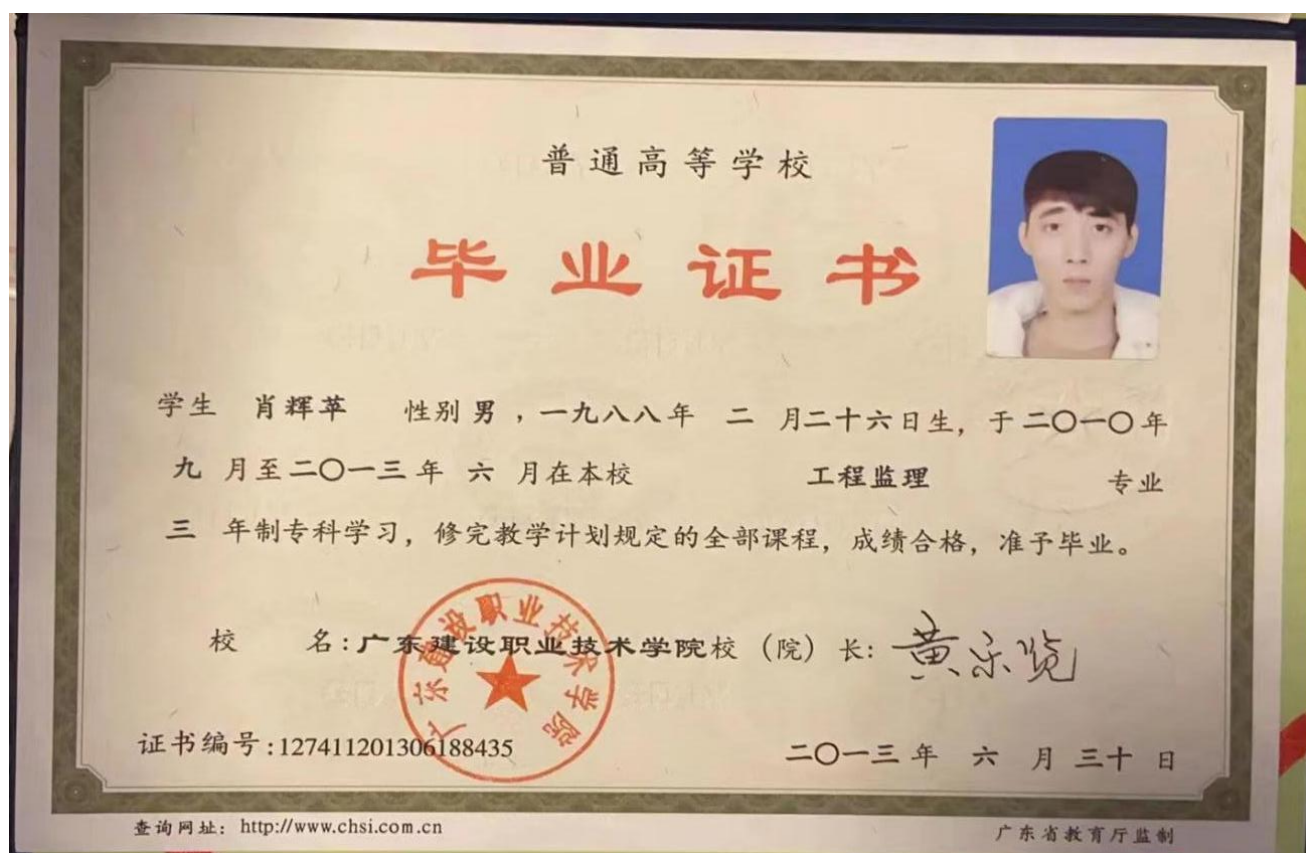 普通高等学校
毕业证书
学生 肖辉苹 性别 男 ，一九八八年 二 月二十六日生，于二〇一〇年
九 月至二〇一三年 六 月在本校 工程监理 专业
三 年制专科学习，修完教学计划规定的全部课程，成绩合格，准予毕业。
校 名：广东建设职业技术学院校（院）长：
广东建设职业技术学院
证书编号：127411201306188435
二〇一三年 六 月 三十 日
查询网址：http://www.chsi.com.cn
广东省教育厅监制